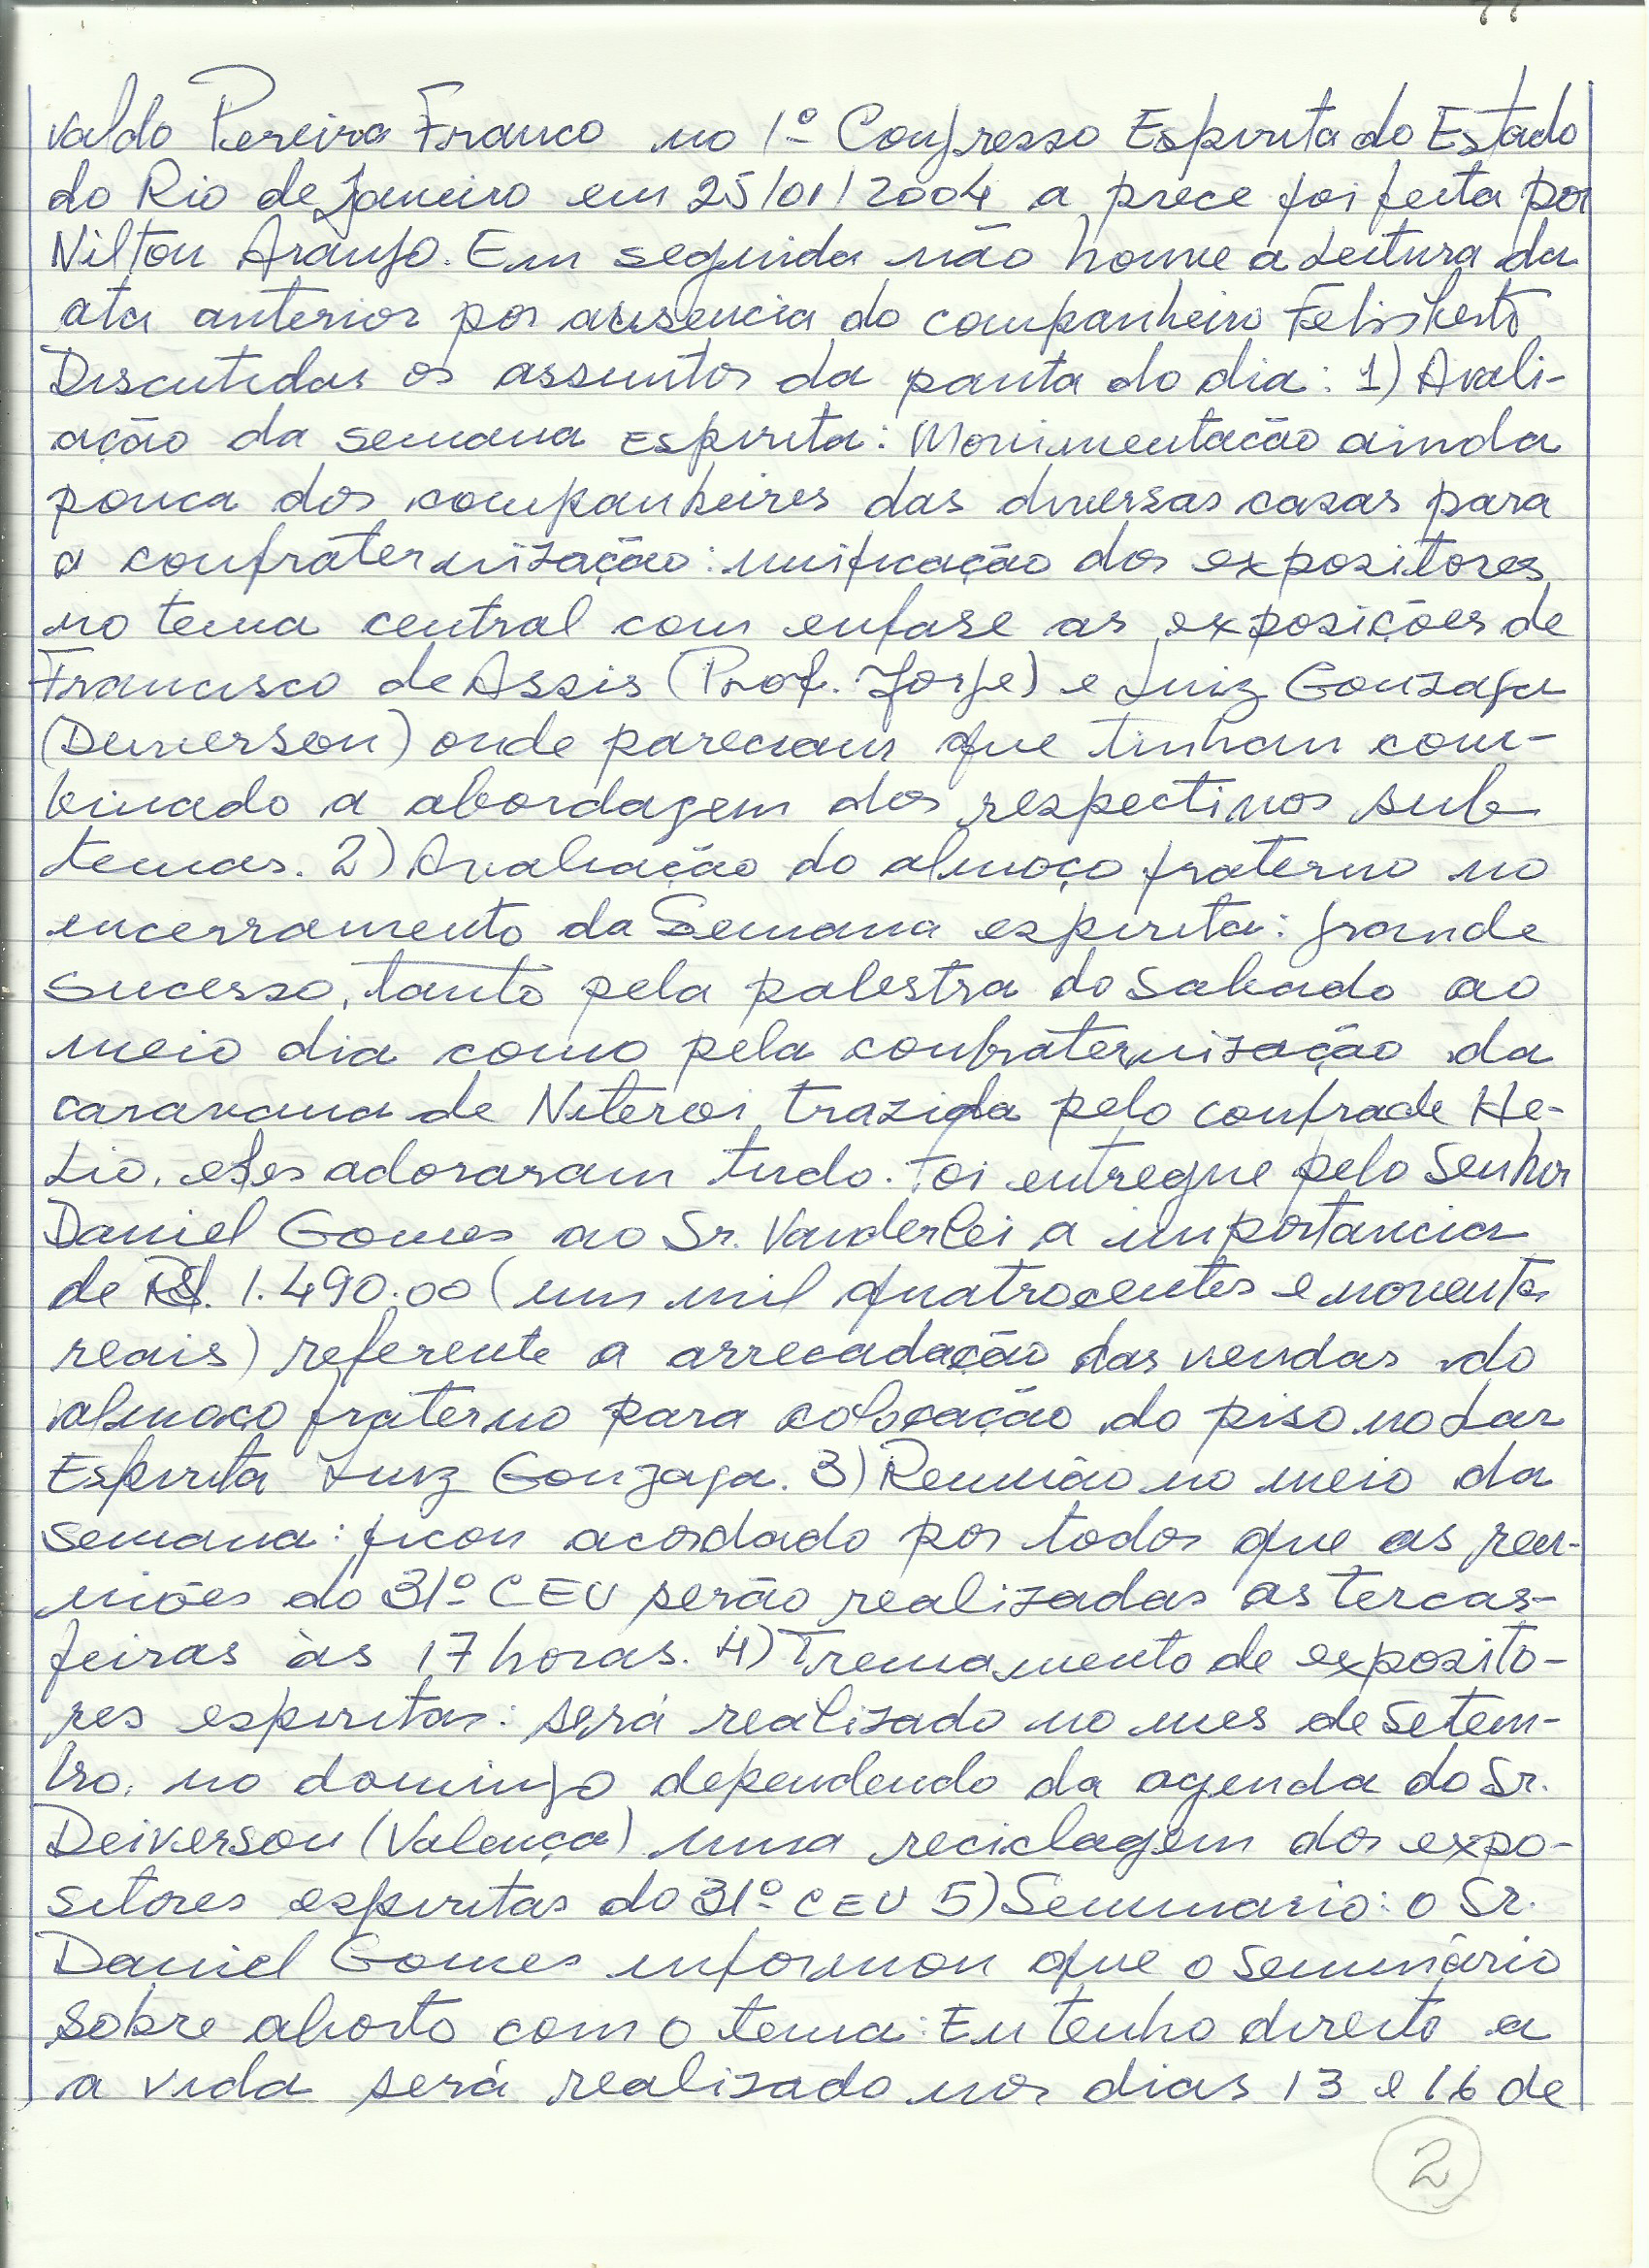 valdo Pereira Franco no 1º Congresso Espirita do Estado
do Rio de Janeiro em 25/01/2004 a prece foi feita por
Nilton Araujo. Em seguida não houve a Leitura da
ata anterior por ausencia do companheiro Felisberto
Discutidas os assuntos da pauta do dia: 1) Avali-
ação da semana Espirita: Movimentacão ainda
pouca dos companheiros das diversas casas para
a confraternização: unificação dos expositores
no tema central com enfase as exposições de
Francisco de Assis (Prof. Jorge) e Luiz Gonzaga
(Deiverson) onde pareciam que tinham com-
binado a abordagem dos respectivos sub
temas. 2) Avaliação do almoço fraterno no
encerramento da Semana espirita: grande
sucesso, tanto pela palestra do Sabado ao
meio dia como pela confraternização da
caravana de Niteroi trazida pelo confrade He-
Lio, eles adoraram tudo. Foi entregue pelo Senhor
Daniel Gomes ao Sr. Vanderlei a importancia
de R$. 1.490.00 (um mil quatrocentos e noventa
reais) referente a arrecadação das vendas do
almoço fraterno para colocação do piso no Lar
Espirita Luiz Gonzaga. 3) Reunião no meio da
semana: ficou acordado por todos que as reu-
niões do 31º CEU serão realizadas as tercas-
feiras às 17 horas. 4) Treinamento de exposito-
res espiritas: será realizado no mes de Setem-
bro, no domingo dependendo da agenda do Sr.
Deiverson (Valença) uma reciclagem dos expo-
sitores espiritas do 31º CEU 5) Seminario: o Sr.
Daniel Gomes informou que o seminário
sobre aborto com o tema: Eu tenho direito a
a vida será realizado nos dias 13 e 16 de
2